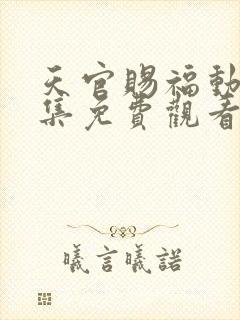 天官賜福動
集免費觀看
曦言曦諾